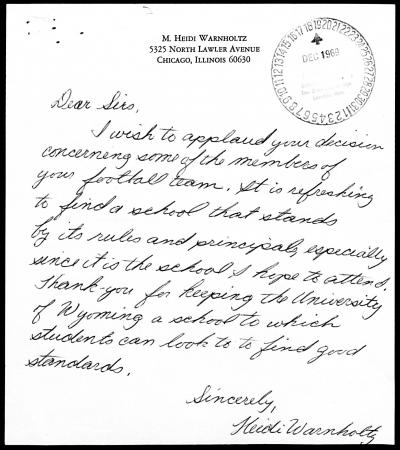 M. Heidi Warnholtz
5325 North Lawler Avenue
Chicago, Illinois 60630
DEC 1969
Dear Sirs,
I wish to applaud your decision
concerneng some of the members of
your football team. It is refreshing
to find a school that stands
by its rules and principals, especially
since it is the school I hope to attend.
Thank-you for keeping the University
of Wyoming a school to which
students can look to to find good
standards.
Sincerely,
Heidi Warnholtz